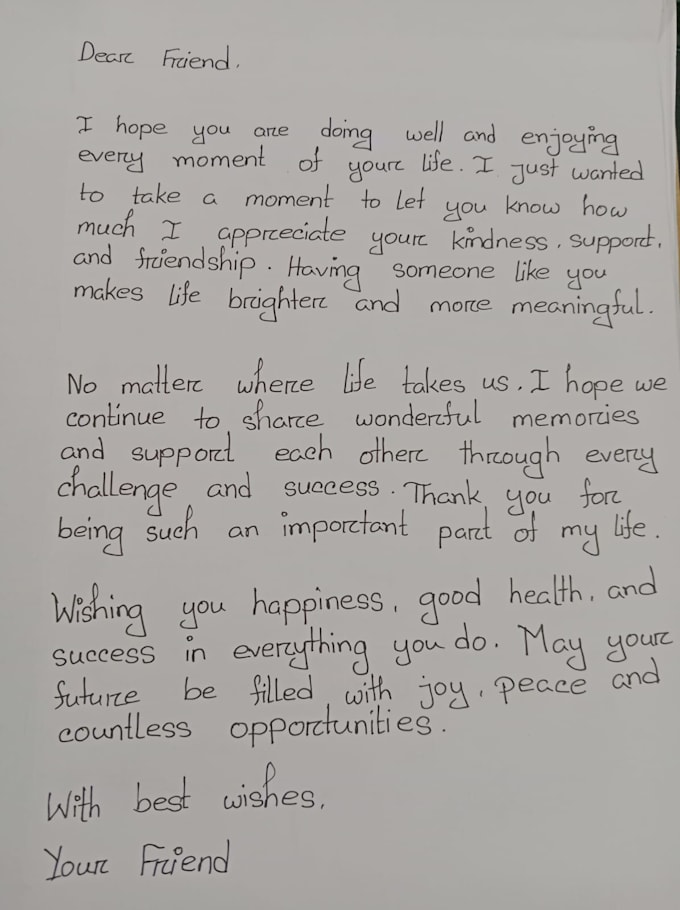 Dear Friend.
I hope you are doing well and enjoying
every moment of your life. I just wanted
to take a moment to let you know how
much I appreciate your kindness, support,
and friendship. Having someone like you
makes life brighter and more meaningful.
No matter where life takes us, I hope we
continue to share wonderful memories
and support each other through every
challenge and success. Thank you for
being such an important part of my life.
Wishing you happiness, good health, and
success in everything you do. May your
future be filled with joy, peace and
countless opportunities.
With best wishes,
Your Friend